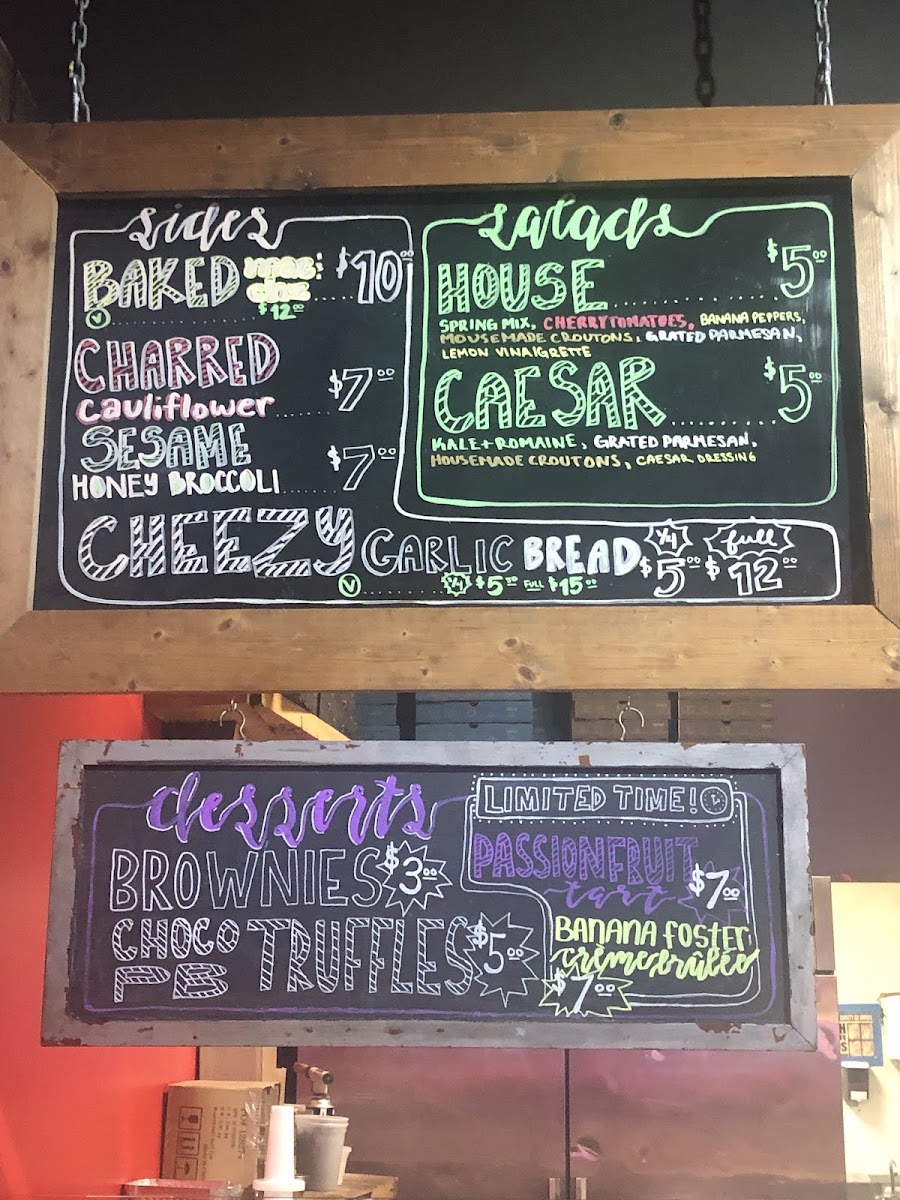 sides
BAKED MAC & CHZ $10.00
V $12.00
CHARRED
Cauliflower $7.00
SESAME
HONEY BROCCOLI $7.00
CHEEZY GARLIC BREAD 1/4 $5.00 full $12.00
V 1/4 $5.00 FULL $15.00
salads
HOUSE $5.00
SPRING MIX, CHERRY TOMATOES, BANANA PEPPERS,
HOUSEMADE CROUTONS, GRATED PARMESAN,
LEMON VINAIGRETTE
CAESAR $5.00
KALE + ROMAINE, GRATED PARMESAN,
HOUSEMADE CROUTONS, CAESAR DRESSING
desserts
BROWNIES $3.00
CHOCO PB TRUFFLES $5.00
LIMITED TIME!
PASSIONFRUIT
tart $7.00
BANANA FOSTER
crème brûlée
$7.00